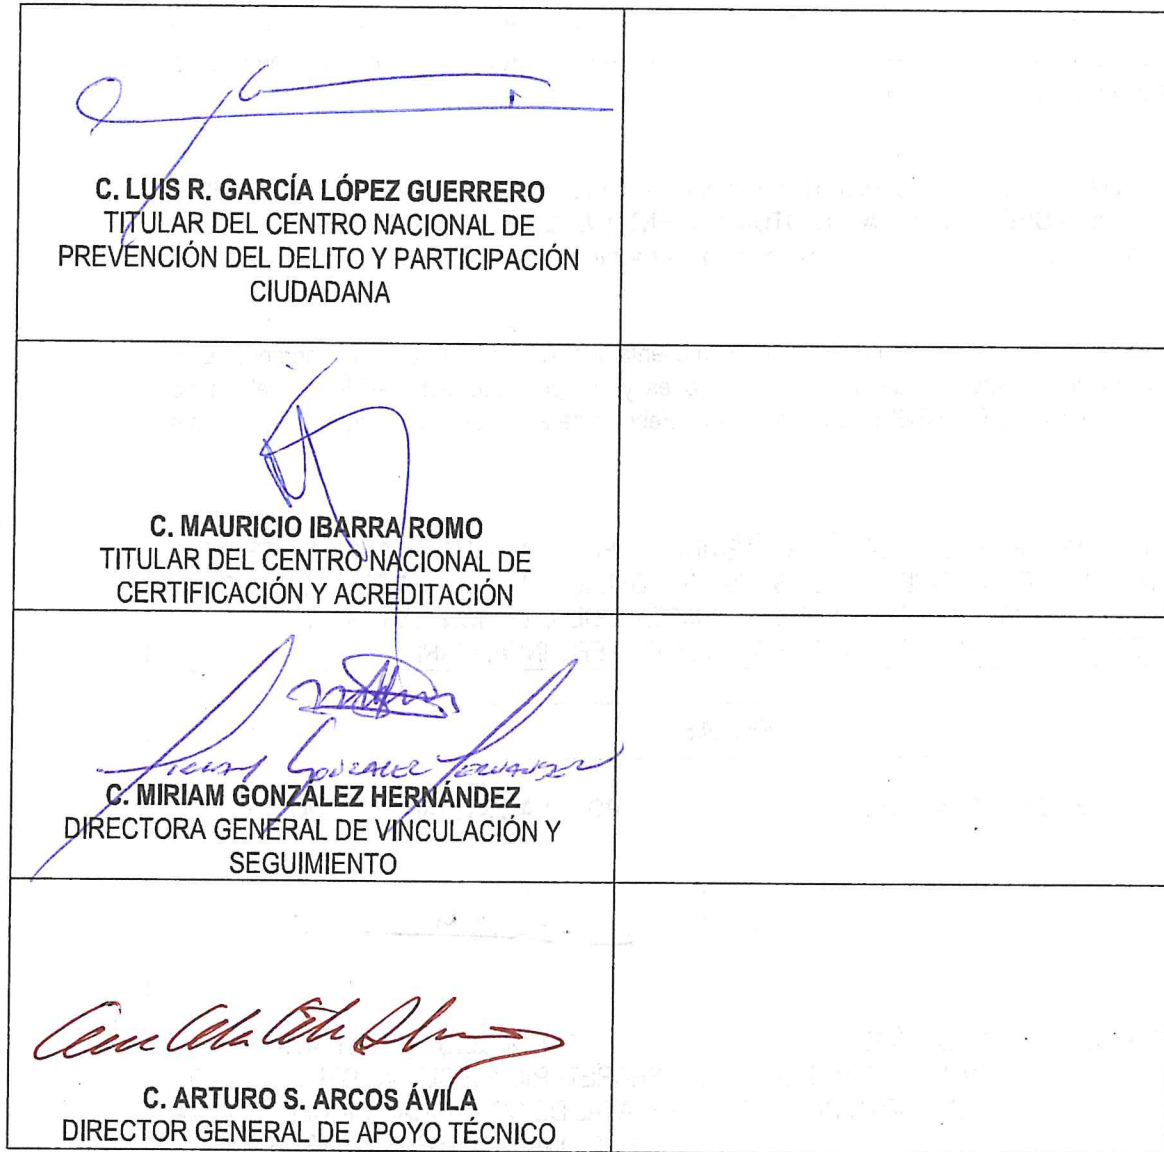 C. LUIS R. GARCÍA LÓPEZ GUERRERO
TITULAR DEL CENTRO NACIONAL DE
PREVENCIÓN DEL DELITO Y PARTICIPACIÓN
CIUDADANA
C. MAURICIO IBARRA ROMO
TITULAR DEL CENTRO NACIONAL DE
CERTIFICACIÓN Y ACREDITACIÓN
C. MIRIAM GONZÁLEZ HERNÁNDEZ
DIRECTORA GENERAL DE VINCULACIÓN Y
SEGUIMIENTO
C. ARTURO S. ARCOS ÁVILA
DIRECTOR GENERAL DE APOYO TÉCNICO